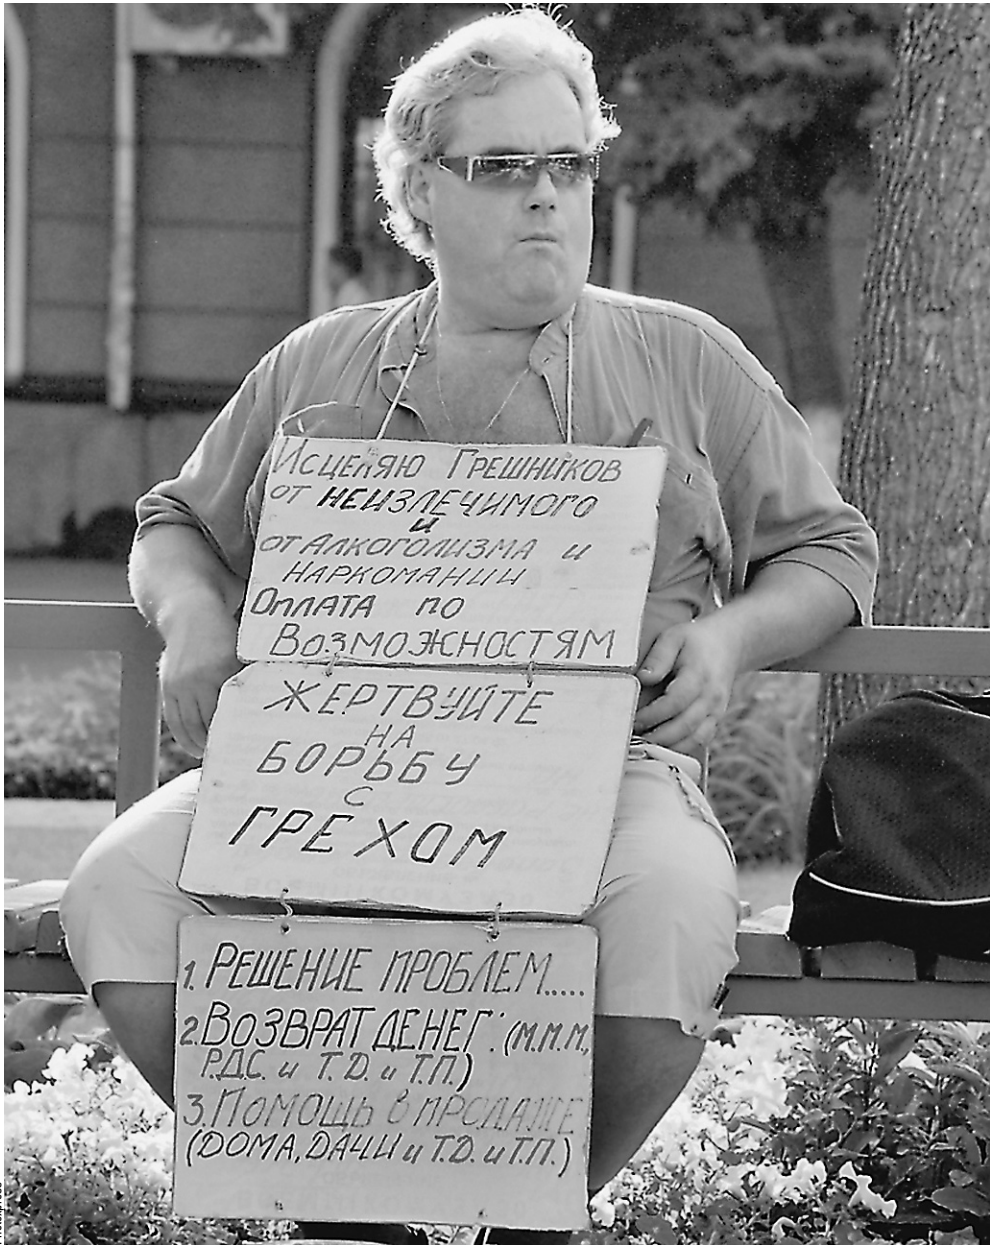 Исцеляю Грешников
от неизлечимого
и
от Алкоголизма и
наркомании
Оплата по
Возможностям
Жертвуйте
на
борьбу
с
грехом
1. Решение проблем.....
2. Возврат денег: (М.М.М.,
Р.Д.С. и Т.Д. и Т.П.)
3. Помощь в продаже
(дома, дачи и Т.Д. и Т.П.)